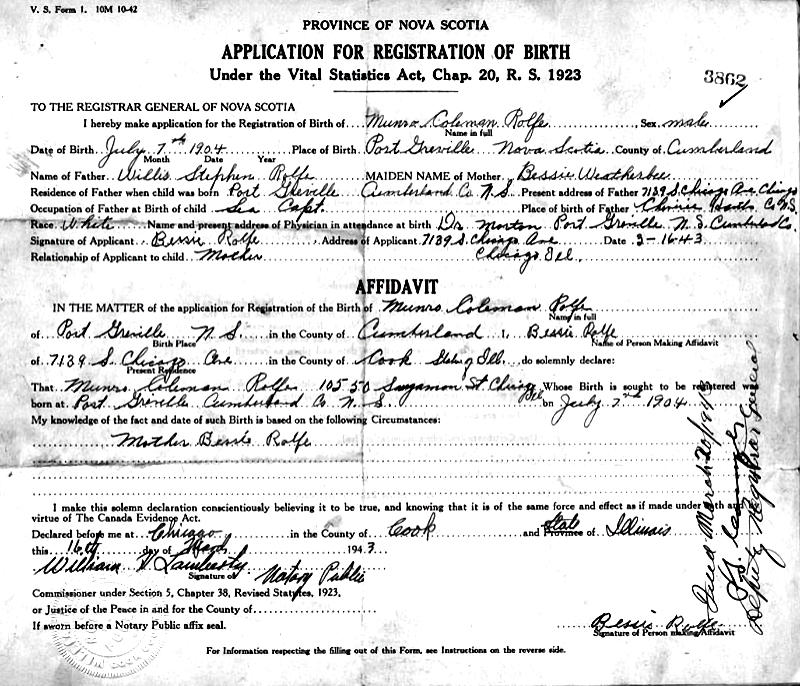 V. S. Form 1. 10M 10-42
PROVINCE OF NOVA SCOTIA
APPLICATION FOR REGISTRATION OF BIRTH
Under the Vital Statistics Act, Chap. 20, R. S. 1923
3862
TO THE REGISTRAR GENERAL OF NOVA SCOTIA
I hereby make application for the Registration of Birth of Munro Coleman Rolfe Sex male
Name in full
Date of Birth July 7th 1904 Place of Birth Port Greville Nova Scotia County of Cumberland
Month Date Year
Name of Father Willis Stephen Rolfe MAIDEN NAME of Mother Bessie Weatherbee
Residence of Father when child was born Port Greville Cumberland Co N.S. Present address of Father 7139 S. Chicago Ave Chicago
Occupation of Father at Birth of child Sea Capt. Place of birth of Father Co N.S.
Race White Name and present address of Physician in attendance at birth Dr. Morton Port Greville N.S. Cumberland Co.
Signature of Applicant Bessie Rolfe Address of Applicant 7139 S. Chicago Ave Date 3-16-43
Relationship of Applicant to child Mother Chicago Ill.
AFFIDAVIT
IN THE MATTER of the application for Registration of the Birth of Munro Coleman Rolfe
Name in full
of Port Greville N.S. in the County of Cumberland I, Bessie Rolfe
Birth Place Name of Person Making Affidavit
of 7139 S. Chicago Ave in the County of Cook State of Ill. do solemnly declare:
Present Residence
That Munro Coleman Rolfe 10550 St Chicago Ill Whose Birth is sought to be registered was
born at Port Greville Cumberland Co N.S. on July 7th 1904
My knowledge of the fact and date of such Birth is based on the following Circumstances:
Mother Bessie Rolfe
I make this solemn declaration conscientiously believing it to be true, and knowing that it is of the same force and effect as if made under oath and
virtue of The Canada Evidence Act.
Declared before me at Chicago in the County of Cook and State Province of Illinois
this 16th day of March 1943
William V Notary Public
Signature of
Commissioner under Section 5, Chapter 38, Revised Statutes, 1923,
or Justice of the Peace in and for the County of
If sworn before a Notary Public affix seal.
Bessie Rolfe
Signature of Person making Affidavit
For Information respecting the filling out of this Form, see Instructions on the reverse side.
March 20/194
Deputy Registrar General